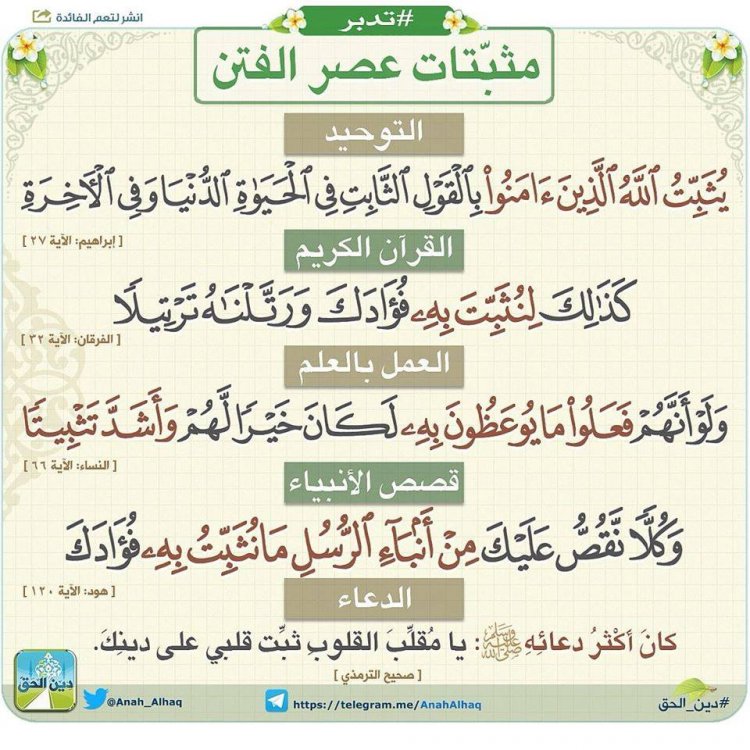 انشر لتعم الفائدة
#تدبر
مثبّتات عصر الفتن
التوحيد
يُثَبِّتُ ٱللَّهُ ٱلَّذِينَ ءَامَنُوا۟ بِٱلْقَوْلِ ٱلثَّابِتِ فِى ٱلْحَيَوٰةِ ٱلدُّنْيَا وَفِى ٱلْأَخِرَةِ
[ إبراهيم: الآية ٢٧ ]
القرآن الكريم
كَذَٰلِكَ لِنُثَبِّتَ بِهِۦ فُؤَادَكَ وَرَتَّلْنَـٰهُ تَرْتِيلًا
[ الفرقان: الآية ٣٢ ]
العمل بالعلم
وَلَوْ أَنَّهُمْ فَعَلُوا۟ مَا يُوعَظُونَ بِهِۦ لَكَانَ خَيْرًا لَّهُمْ وَأَشَدَّ تَثْبِيتًا
[ النساء: الآية ٦٦ ]
قصص الأنبياء
وَكُلًّا نَّقُصُّ عَلَيْكَ مِنْ أَنۢبَآءِ ٱلرُّسُلِ مَا نُثَبِّتُ بِهِۦ فُؤَادَكَ
[ هود: الآية ١٢٠ ]
الدعاء
كانَ أكْثرُ دعائِهِ ﷺ : يا مُقلِّبَ القلوبِ ثبِّت قلبي على دينِكَ.
[ صحيح الترمذي ]
دين الحق
@Anah_Alhaq
https://telegram.me/AnahAlhaq
#دين_الحق